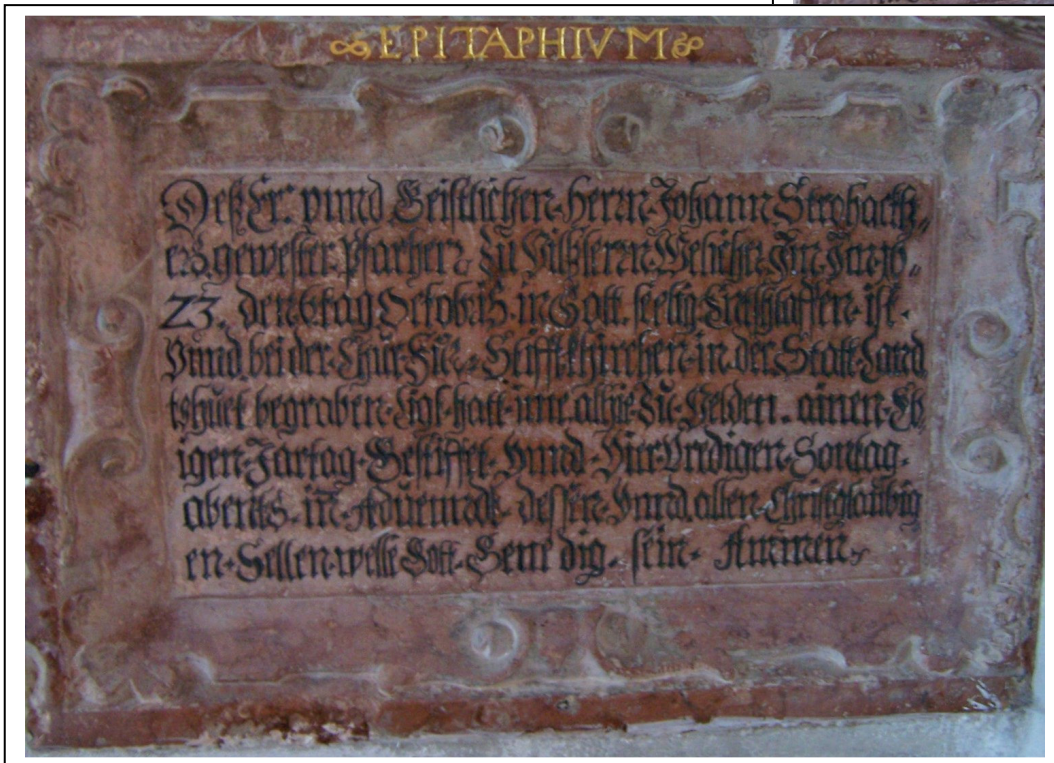 EPITAPHIVM
Deß Er. vnnd Geistlichen. Herrn. Johann Strobach
ers. gewester. Pfarher. Zu Vilßlern Welicher. Im. Jar. 16
23. den 6 tag Octobris. in Gott. seelig. Entschlaffen. ist.
Vnnd. bei der. Chur. Für. Stifftkhirchen. in der Statt. Land
tshuet. begraben. Ligt. hatt. alhie. Zu. Velden. ainen. Eb
igen. Jartag. Gestifftet. Vnnd. Vier. Predigen. Sontag.
abents. im. Aduennt. dessen. Vnnd. allen. Christglaubig
en. Sellen. welle Gott. Gene dig. sein. Ammen.